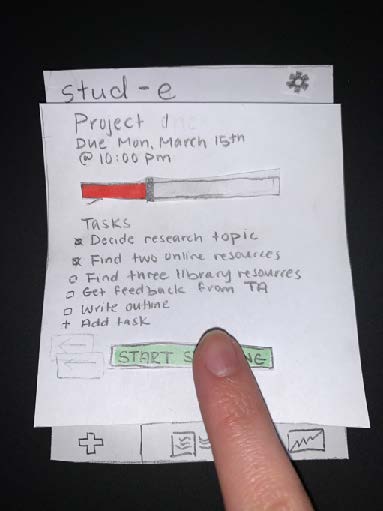 stud-e
Project
Due Mon, March 15th
@ 10:00 pm
Tasks
Decide research topic
Find two online resources
Find three library resources
Get feedback from TA
Write outline
+ Add task
START